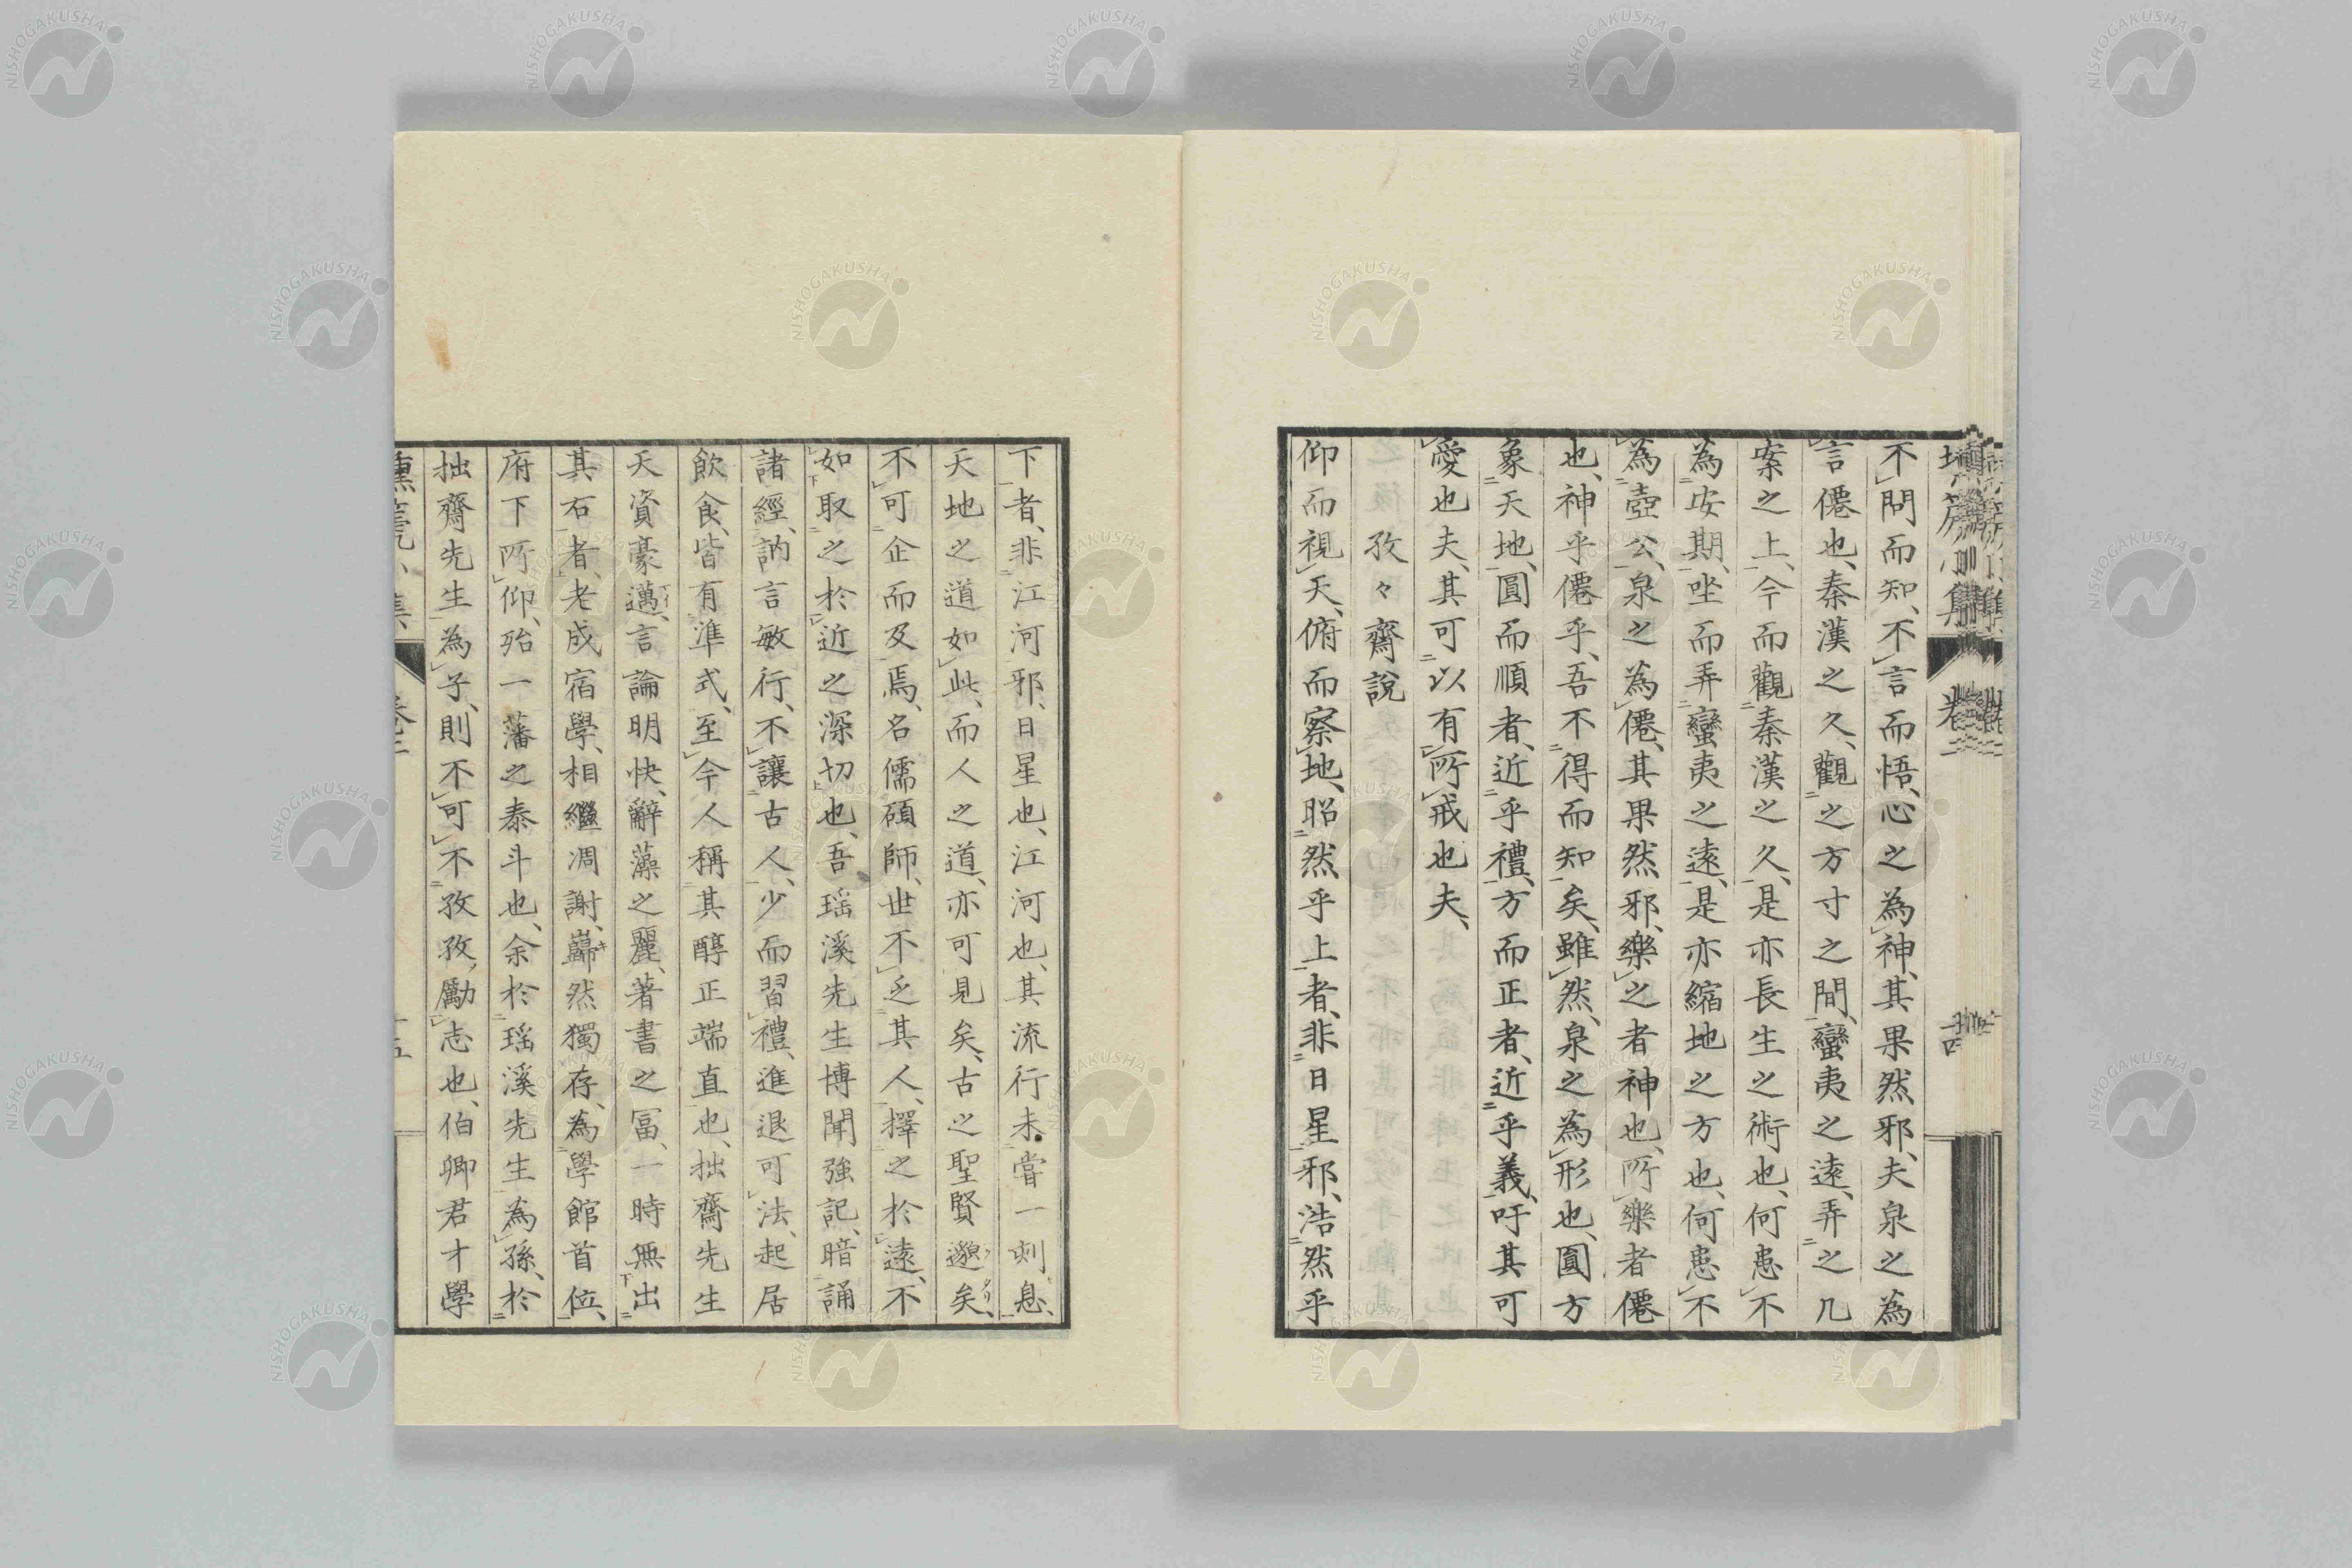 不問而知、不言而悟、心之為神、其果然邪、夫泉之為
言僊也、秦漢之久、觀之方寸之間、蠻夷之遠、弄之几
案之上、今而觀秦漢之久、是亦長生之術也、何患不
為安期、坐而弄蠻夷之遠、是亦縮地之方也、何患不
為壺公、泉之為僊、其果然邪、樂之者神也、所樂者僊
也、神乎僊乎、吾不得而知矣、雖然、泉之為形也、圓方
象天地、圓而順者、近乎禮、方而正者、近乎義、吁其可
愛也夫、其可以有所戒也夫、
孜々齋說
仰而視天、俯而察地、昭然乎上者、非日星邪、浩然乎
下者、非江河邪、日星也、江河也、其流行未嘗一刻息、
天地之道如此、而人之道、亦可見矣、古之聖賢邈矣、
不可企而及焉、名儒碩師、世不乏其人、擇之於遠、不
如取之於近之深切也、吾瑶溪先生博聞強記、暗誦
諸經、訥言敏行、不讓古人、少而習禮、進退可法、起居
飲食、皆有準式、至今人稱其醇正端直也、拙齋先生
天資豪邁、言論明快、辭藻之麗、著書之冨、一時無出
其右者、老成宿學、相繼凋謝、巋然獨存、為學館首位、
府下所仰、殆一藩之泰斗也、余於瑶溪先生為孫、於
拙齋先生為子、則不可不孜孜勵志也、伯卿君才學